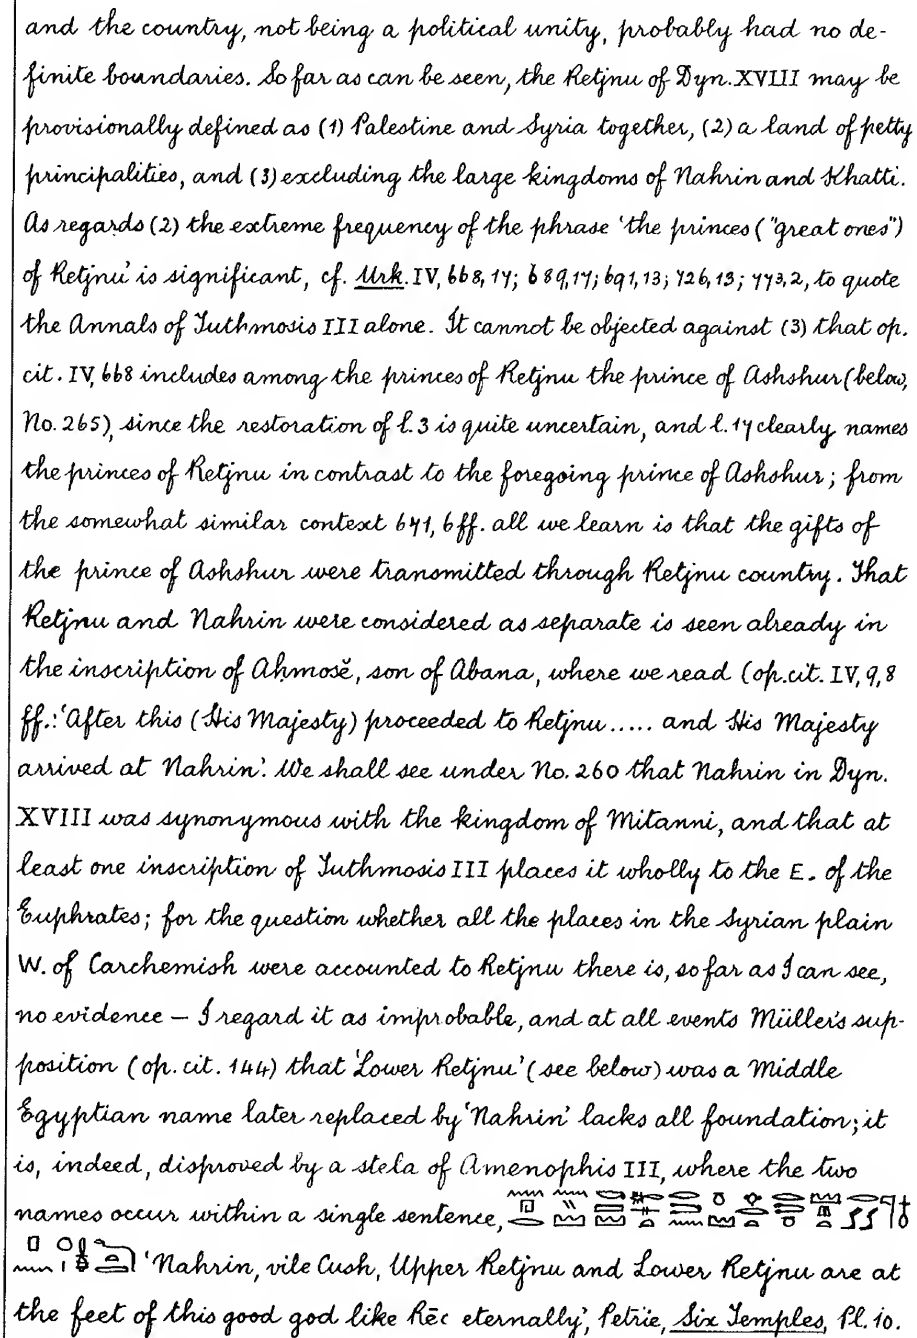 and the country, not being a political unity, probably had no de-
finite boundaries. So far as can be seen, the Retjnu of Dyn. XVIII may be
provisionally defined as (1) Palestine and Syria together, (2) a land of petty
principalities, and (3) excluding the large kingdoms of Nahrin and Khatti.
As regards (2) the extreme frequency of the phrase 'the princes ("great ones")
of Retjnu' is significant, cf. Urk. IV, 668, 17; 689, 17; 691, 13; 726, 13; 773, 2, to quote
the Annals of Tuthmosis III alone. It cannot be objected against (3) that op.
cit. IV, 668 includes among the princes of Retjnu the prince of Ashshur (below,
No. 265), since the restoration of l. 3 is quite uncertain, and l. 17 clearly names
the princes of Retjnu in contrast to the foregoing prince of Ashshur; from
the somewhat similar context 671, 6 ff. all we learn is that the gifts of
the prince of Ashshur were transmitted through Retjnu country. That
Retjnu and Nahrin were considered as separate is seen already in
the inscription of Aḥmosĕ, son of Abana, where we read (op. cit. IV, 9, 8
ff.: 'After this (His Majesty) proceeded to Retjnu ..... and His Majesty
arrived at Nahrin'. We shall see under No. 260 that Nahrin in Dyn.
XVIII was synonymous with the kingdom of Mitanni, and that at
least one inscription of Tuthmosis III places it wholly to the E. of the
Euphrates; for the question whether all the places in the Syrian plain
W. of Carchemish were accounted to Retjnu there is, so far as I can see,
no evidence – I regard it as improbable, and at all events Müller's sup-
position (op. cit. 144) that 'Lower Retjnu' (see below) was a Middle
Egyptian name later replaced by 'Nahrin' lacks all foundation; it
is, indeed, disproved by a stela of Amenophis III, where the two
names occur within a single sentence,
'Nahrin, vile Cush, Upper Retjnu and Lower Retjnu are at
the feet of this good god like Rēc eternally', Petrie, Six Temples, Pl. 10.